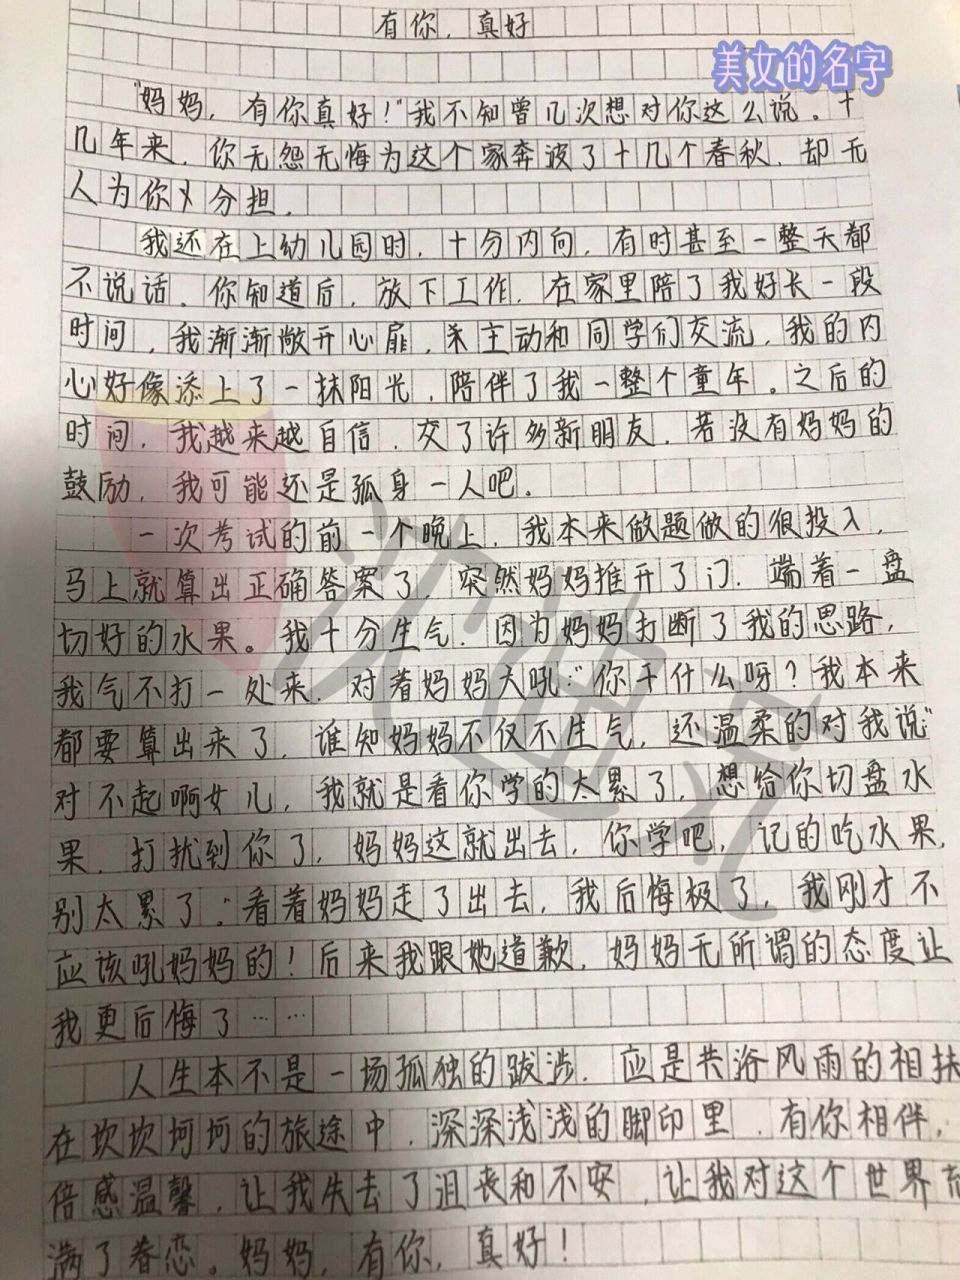 有你，真好
美女的名字
“妈妈，有你真好！”我不知曾几次想对你这么说。十
几年来，你无怨无悔为这个家奔波了十几个春秋，却无
人为你分担。
我还在上幼儿园时，十分内向，有时甚至一整天都
不说话。你知道后，放下工作，在家里陪了我好长一段
时间，我渐渐敞开心扉，主动和同学们交流，我的内
心好像添上了一抹阳光，陪伴了我一整个童年。之后的
时间，我越来越自信，交了许多新朋友，若没有妈妈的
鼓励，我可能还是孤身一人吧。
一次考试的前一个晚上，我本来做题做的很投入，
马上就算出正确答案了，突然妈妈推开了门，端着一盘
切好的水果。我十分生气，因为妈妈打断了我的思路，
我气不打一处来，对着妈妈大吼：“你干什么呀？我本来
都要算出来了，谁知妈妈不仅不生气，还温柔的对我说“
对不起啊女儿，我就是看你学的太累了，想给你切盘水
果，打扰到你了，妈妈这就出去，你学吧，记的吃水果，
别太累了。”看着妈妈走了出去，我后悔极了，我刚才不
应该吼妈妈的！后来我跟她道歉，妈妈无所谓的态度让
我更后悔了……
人生本不是一场孤独的跋涉，应是共浴风雨的相扶
在坎坎坷坷的旅途中，深深浅浅的脚印里，有你相伴，
倍感温馨，让我失去了沮丧和不安，让我对这个世界充
满了眷恋。妈妈，有你，真好！